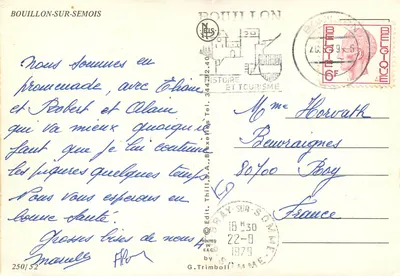 BOUILLON-SUR-SEMOIS
Nous sommes en
promenade, avec Eliane
et Robert et Alain
qui va mieux quoique
faut que je lui continue
les piqures quelques temps.
Nous vous esperons en
bonne santé.
Grosses bises de nous 4.
Marcelle
250/52
BOUILLON
HISTOIRE
ET TOURISME
NELS
BELGIQUE
BELGIE
6F
© Edit. Thill, s.A. Bruxelles Tel.
by
G. Trimboli
Mme Horvath
Beuvraignes
80700 Roy
France
BRAY-SUR-SOMME
16 H 30
22-9
1979
SOMME